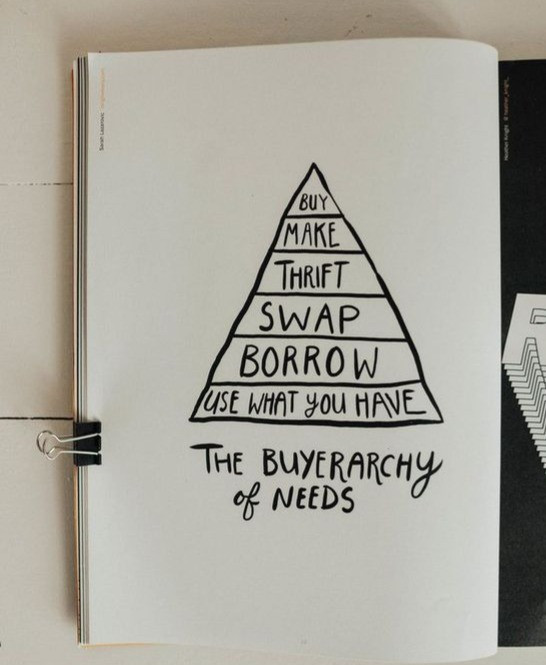 BUY
MAKE
THRIFT
SWAP
BORROW
USE WHAT YOU HAVE
THE BUYERARCHY
of NEEDS
Sarah Lazarovic